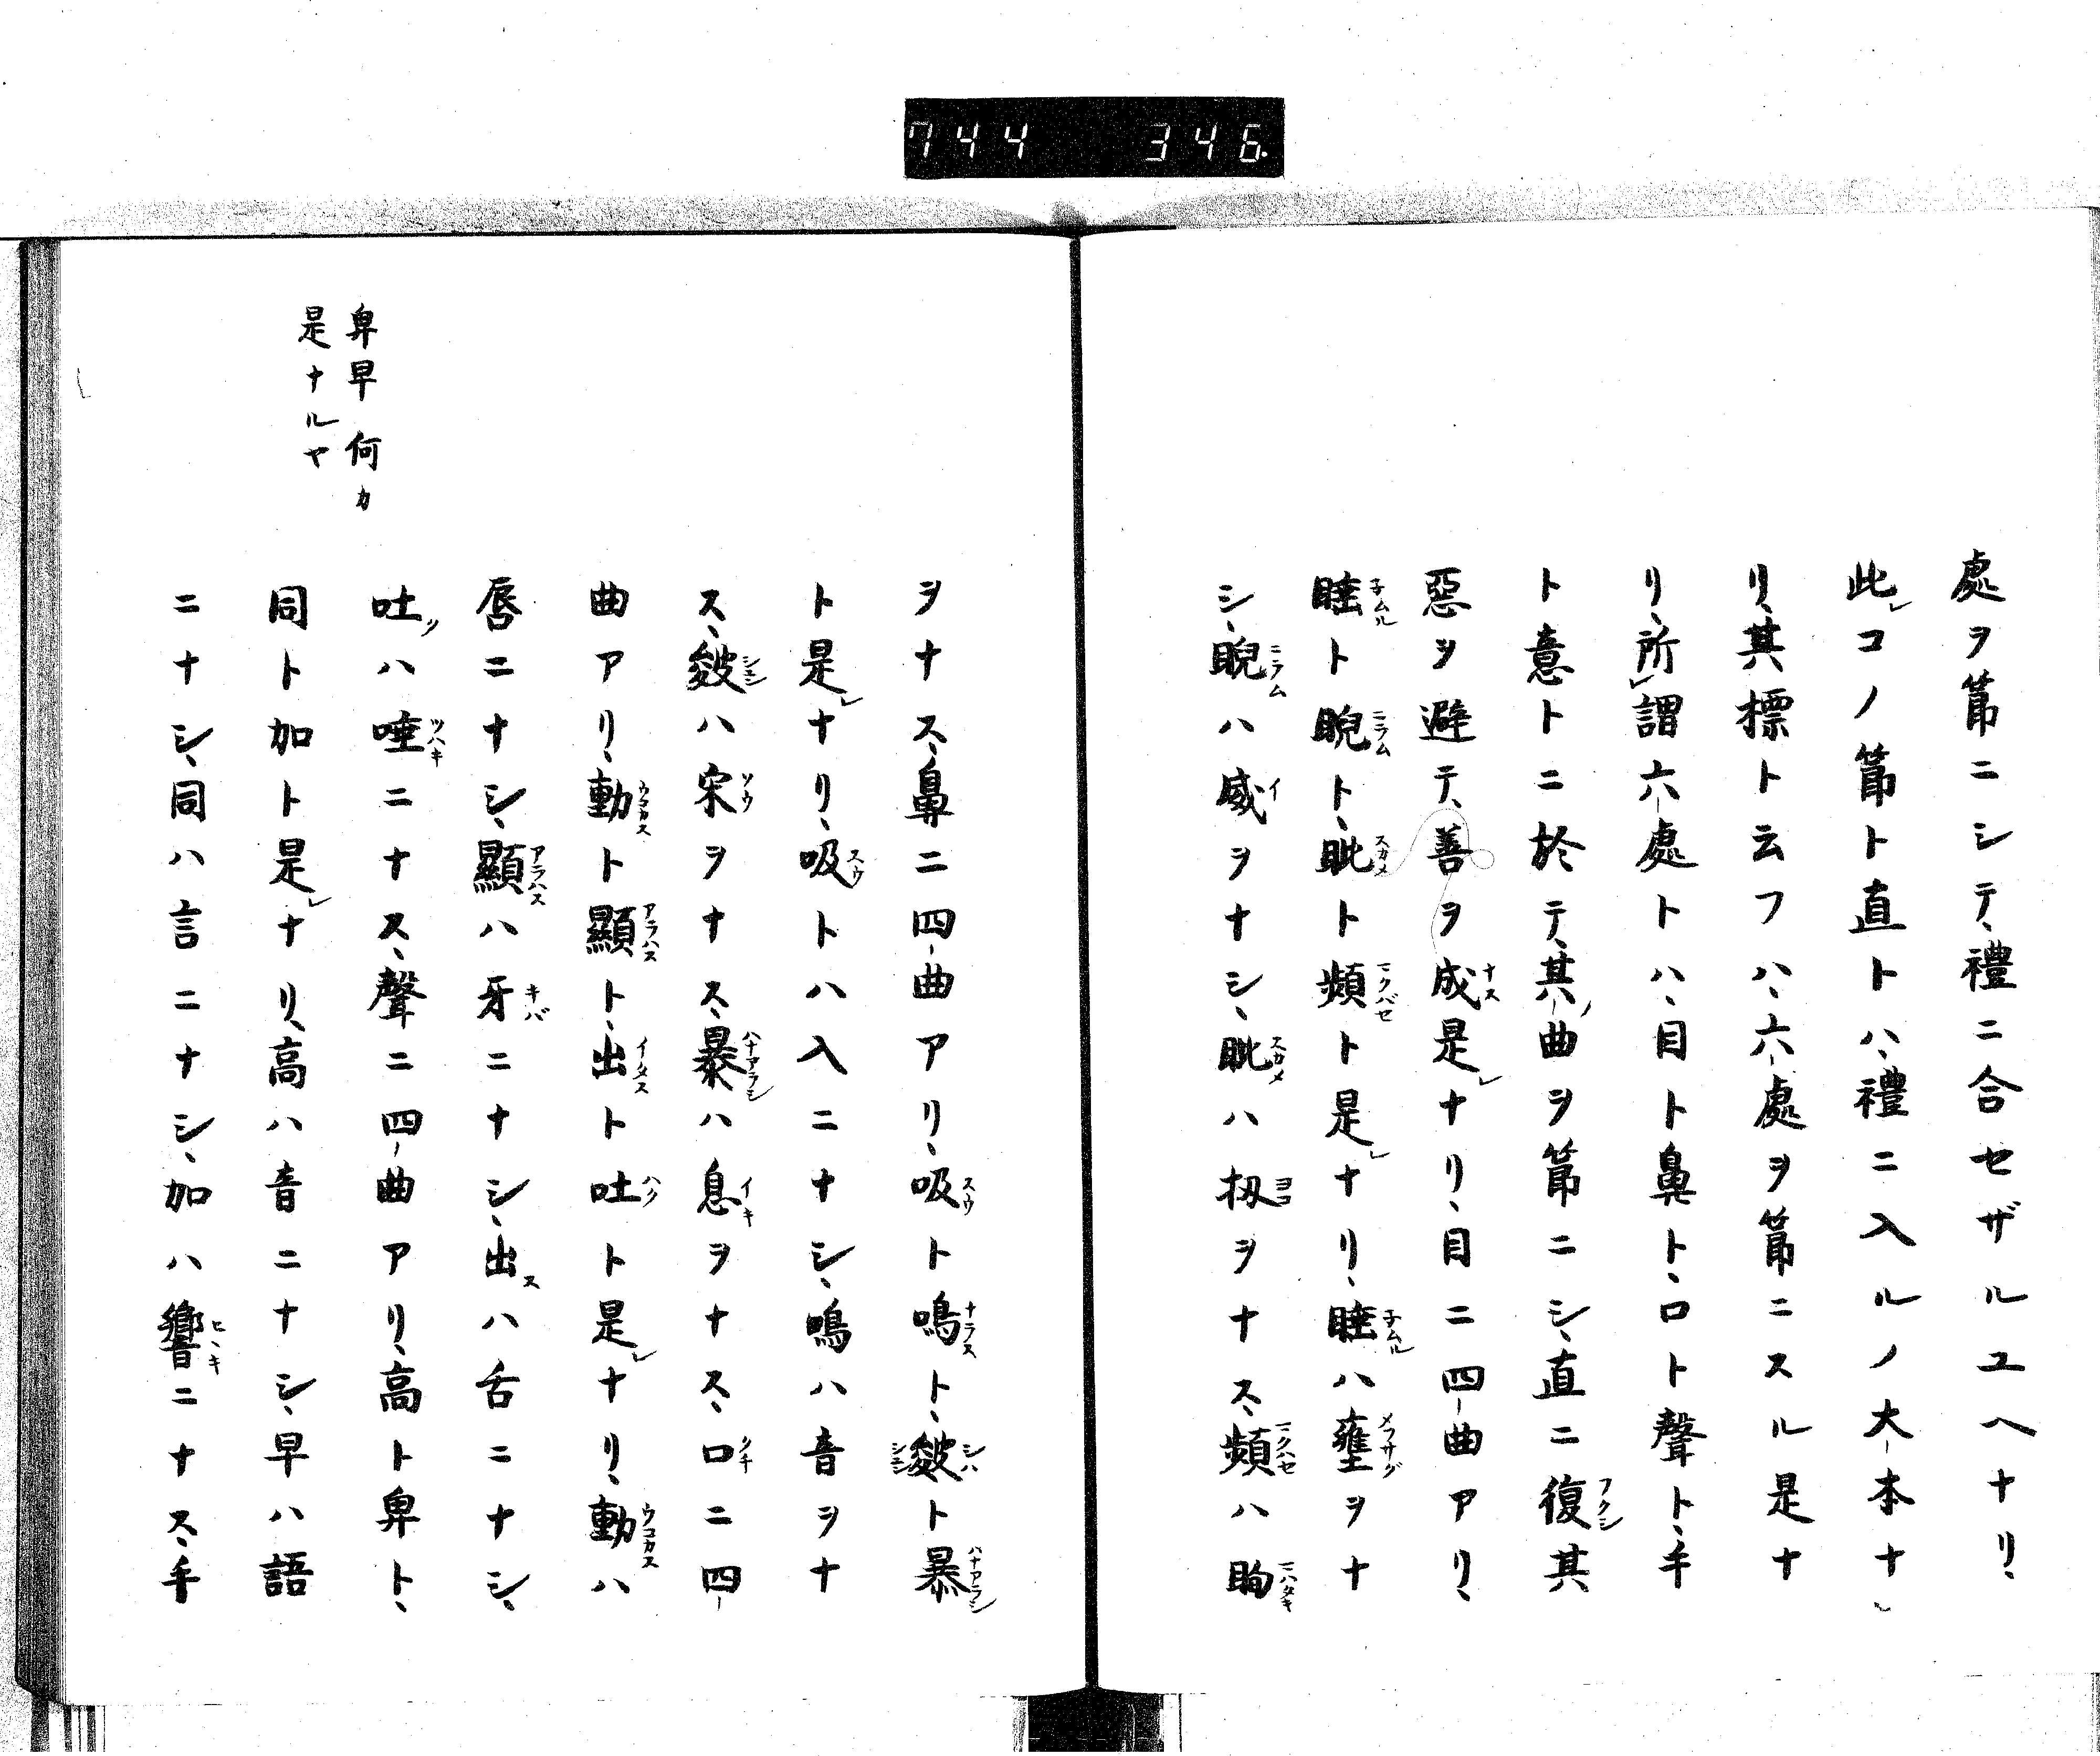 744 346.
處ヲ節ニシテ、禮ニ合セザルユヘナリ、
此レコノ節ト直トハ、禮ニ入ルノ大本ナ
リ、其標ト云フハ、六處ヲ節ニスル是ナ
リ、所謂六處トハ、目ト鼻ト、口ト聲ト、手
ト意トニ於テ、其ノ曲ヲ節ニシ、直ニ復其
惡ヲ避テ、善ヲ成是レナリ、目ニ四曲アリ、
睦ト睨ト、眦ト頻ト是レナリ、睦ハ壅ヲナ
シ、睨ハ威ヲナシ、眦ハ扨ヲナス、頻ハ眴
ヲナス、鼻ニ四曲アリ、吸ト鳴ト、皴ト暴
ト是レナリ、吸トハ入ニナシ、鳴ハ音ヲナ
ス、皴ハ宋ヲナス、暴ハ息ヲナス、口ニ四
曲アリ、動ト顯ト、出ト吐ト是レナリ、動ハ
唇ニナシ、顯ハ牙ニナシ、出スハ舌ニナシ、
吐クハ唾ニナス、聲ニ四曲アリ、高ト卑ト、
同ト加ト是レナリ、高ハ音ニナシ、早ハ語
ニナシ、同ハ言ニナシ、加ハ響ニナス、手
卑早何カ
是ナルヤ